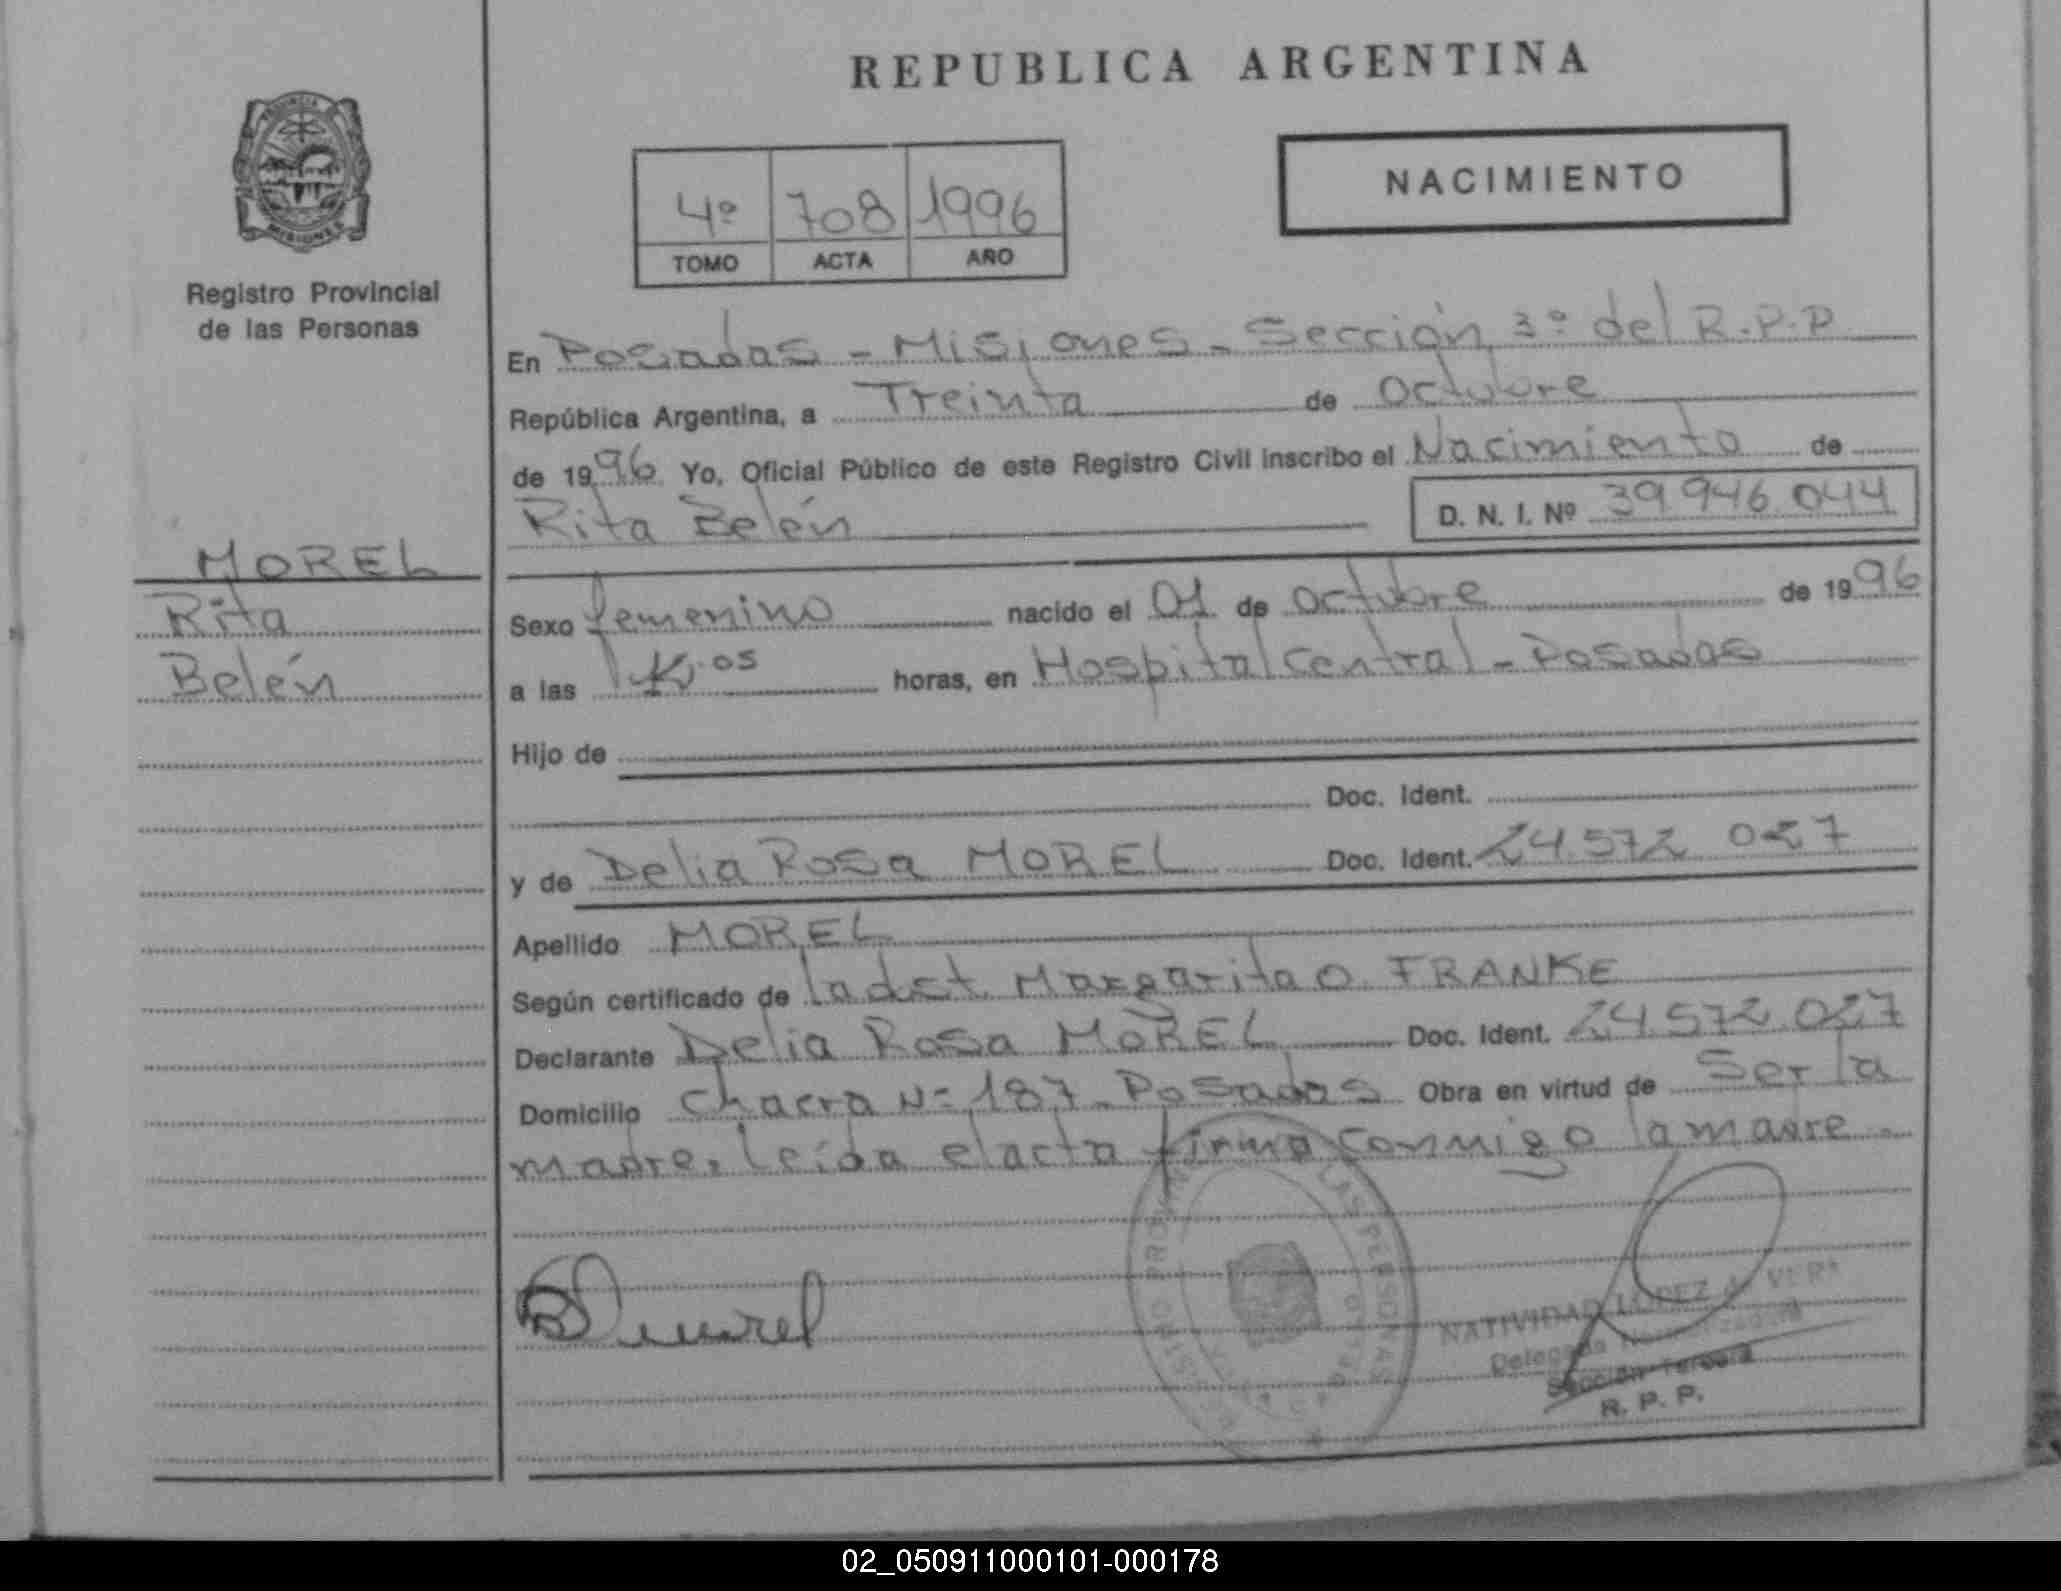 REPUBLICA ARGENTINA
PROVINCIA
MISIONES
Registro Provincial
de las Personas
4º 708 1996
TOMO ACTA AÑO
NACIMIENTO
En Posadas - Misiones - Sección 3º del R.P.P
República Argentina, a Treinta de Octubre
de 1996 Yo, Oficial Público de este Registro Civil inscribo el Nacimiento de
Rita Belén
D. N. I. Nº 39.946.044
MOREL
Rita
Belén
Sexo femenino nacido el 01 de octubre de 1996
a las horas, en Hospital Central - Posadas
Hijo de
Doc. Ident.
y de Delia Rosa MOREL Doc. Ident. 24.572 027
Apellido MOREL
Según certificado de la dist. Margarita O. FRANKE
Declarante Delia Rosa MOREL Doc. Ident. 24.572.027
Domicilio Chacra Nº 187 - Posadas Obra en virtud de Ser la
madre. Leída el acta firma conmigo la madre.
NATIVIDAD LOPEZ de VERA
Delegada Normalizadora
Sección Tercera
R. P. P.
02_050911000101-000178